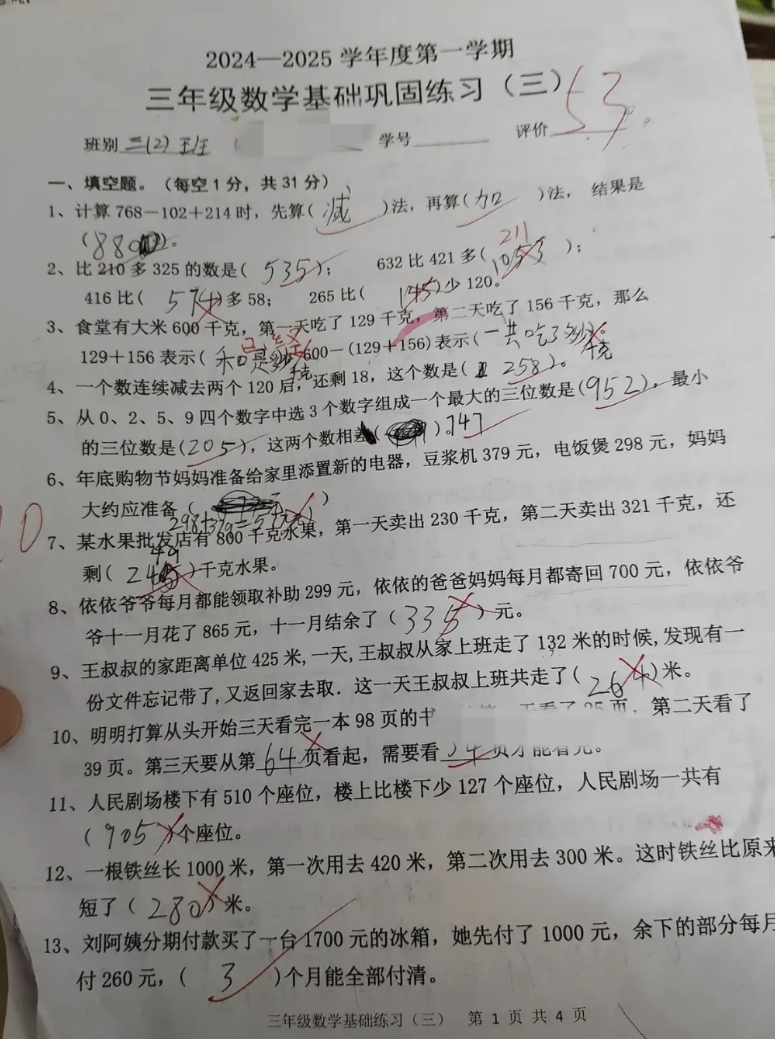 2024—2025 学年度第一学期
三年级数学基础巩固练习（三）53
班别 三(2)班 学号 评价
一、填空题。（每空1分，共31分）
1、计算768－102＋214时，先算(减)法，再算(加)法， 结果是
(880)。
211
2、比210多325的数是( 535 )； 632比421多( 1053 )；
416比( 574 )多58； 265比( 145 )少120。
3、食堂有大米600千克，第一天吃了129千克，第二天吃了156千克，那么
129＋156表示( 和是 600－(129＋156)表示(一共吃了多少千克)。
4、一个数连续减去两个120后，还剩18，这个数是( 258 )。
5、从0、2、5、9四个数字中选3个数字组成一个最大的三位数是(952)，最小
的三位数是(205)，这两个数相差( )。747
6、年底购物节妈妈准备给家里添置新的电器，豆浆机379元，电饭煲298元，妈妈
大约应准备（ ）
7、某水果批发店有800千克水果，第一天卖出230千克，第二天卖出321千克，还
剩( )千克水果。
8、依依爷爷每月都能领取补助299元，依依的爸爸妈妈每月都寄回700元，依依爷
爷十一月花了865元，十一月结余了( 335 )元。
9、王叔叔的家距离单位425米,一天,王叔叔从家上班走了132米的时候,发现有一
份文件忘记带了,又返回家去取．这一天王叔叔上班共走了( 264 )米。
10、明明打算从头开始三天看完一本98页的书 第二天看了
39页。第三天要从第 64 页看起，需要看 34 页才能看完。
11、人民剧场楼下有510个座位，楼上比楼下少127个座位，人民剧场一共有
( 905 )个座位。
12、一根铁丝长1000米，第一次用去420米，第二次用去300米。这时铁丝比原来
短了( 280 )米。
13、刘阿姨分期付款买了一台1700元的冰箱，她先付了1000元，余下的部分每月
付260元，( 3 )个月能全部付清。
三年级数学基础练习（三） 第 1 页 共 4 页